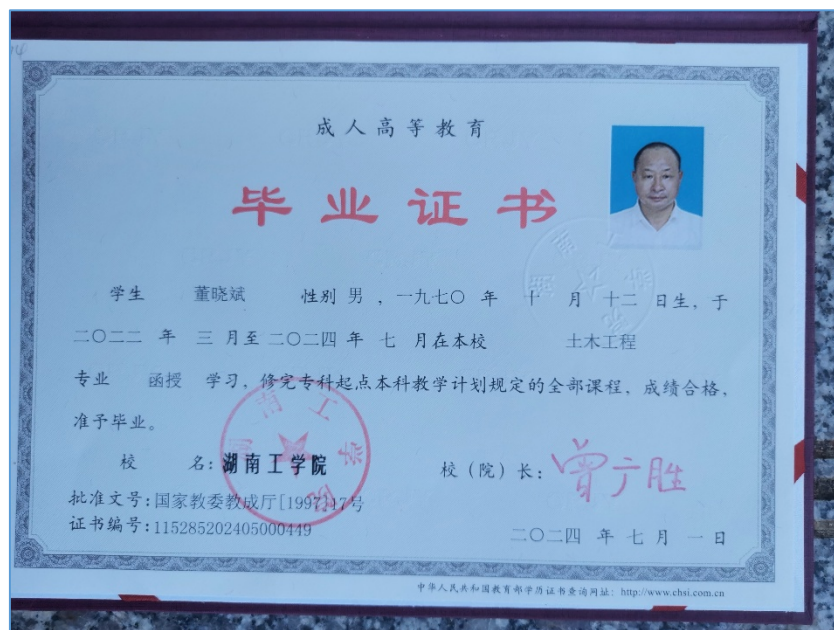 成人高等教育
毕业证书
学生 董晓斌 性别 男 ，一九七〇 年 十 月 十二 日生，于
二〇二二 年 三 月至 二〇二四 年 七 月在本校 土木工程
专业 函授 学习，修完专科起点本科教学计划规定的全部课程，成绩合格，
准予毕业。
校 名：湖南工学院
校（院）长：曾广胜
批准文号：国家教委教成厅[1997]17号
证书编号：115285202405000449
二〇二四 年 七 月 一 日
湖南工学院
中华人民共和国教育部学历证书查询网址：http://www.chsi.com.cn